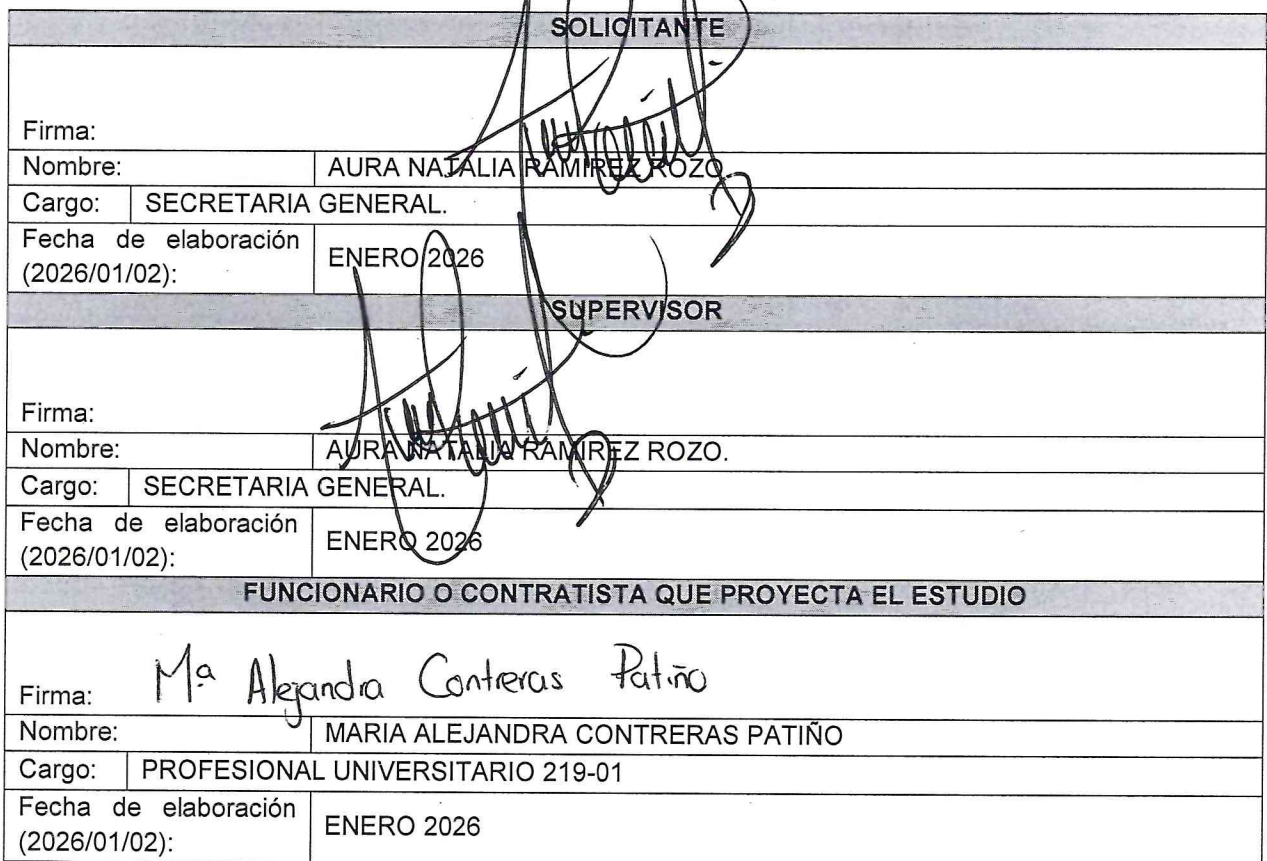 SOLICITANTE
Firma:
Nombre: AURA NATALIA RAMIREZ ROZO
Cargo: SECRETARIA GENERAL.
Fecha de elaboración
(2026/01/02): ENERO 2026
SUPERVISOR
Firma:
Nombre: AURA NATALIA RAMIREZ ROZO.
Cargo: SECRETARIA GENERAL.
Fecha de elaboración
(2026/01/02): ENERO 2026
FUNCIONARIO O CONTRATISTA QUE PROYECTA EL ESTUDIO
Firma: Mª Alejandra Contreras Patiño
Nombre: MARIA ALEJANDRA CONTRERAS PATIÑO
Cargo: PROFESIONAL UNIVERSITARIO 219-01
Fecha de elaboración
(2026/01/02): ENERO 2026